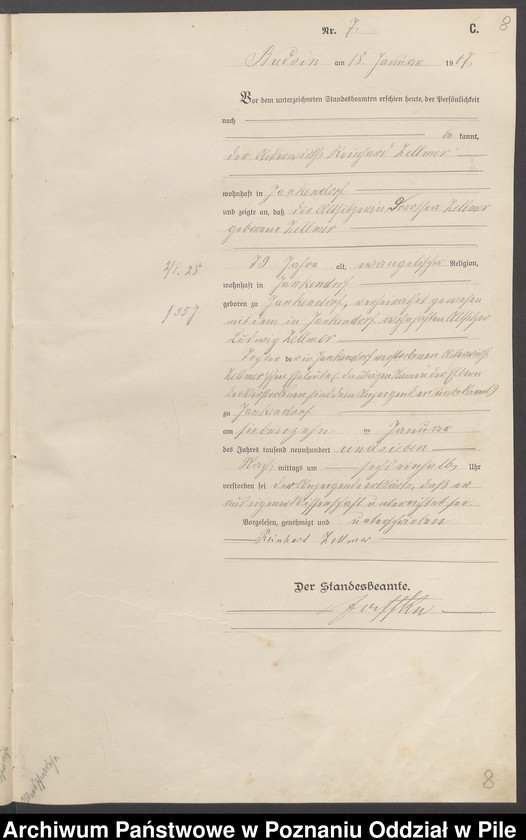 Nr. 7. C. 8
Budsin am 18. Januar 1907.
Vor dem unterzeichneten Standesbeamten erschien heute, der Persönlichkeit
nach
be kannt,
der Ackerwirth Reinhard Zellmer
wohnhaft in Jankendorf
und zeigte an, daß die Altsitzerin Dorothea Zellmer
geborene Zellmer
2/1. 28
79 Jahre alt, evangelischer Religion,
wohnhaft in Jankendorf
1557
geboren zu Jankendorf, verheirathet gewesen
mit dem in Jankendorf wohnhaften Altsitzer
Ludwig Zellmer
Tochter der in Jankendorf verstorbenen
Zellmerschen Eheleute, die übrigen Namen der Eltern
der Verstorbenen sind dem Anzeigenden unbekannt
zu Jankendorf
am siebenzehn ten Januar
des Jahres tausend neunhundert und sieben
Nach mittags um sechs einhalb Uhr
verstorben sei. Der Anzeigende erklärte, daß er
aus eigener Wissenschaft unterrichtet sei.
Vorgelesen, genehmigt und unterschrieben
Reinhard Zellmer
Der Standesbeamte.
8
Archiwum Państwowe w Poznaniu Oddział w Pile